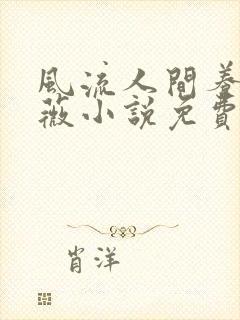 風流人間春
薇小說免費
肖洋